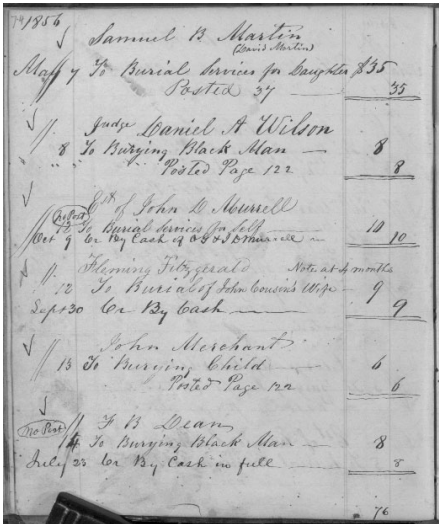 74 1856
Samuel B Martin
(David Martin)
May 7 To Burial Services for Daughter $35
Posted 37 35
Judge Daniel A Wilson
" 8 To Burying Black Man 8
Posted Page 122 8
Est of John D Murrell
No Post
" 12 To Burial Services for Self 10
Oct 9 Cr By Cash of D Murrell 10
" Fleming Fitzgerald Note at 4 months
12 To Burial of John Couson's Wife 9
Sept 30 Cr By Cash 9
John Merchant
" 13 To Burying Child 6
Posted Page 122 6
No Post
" F B Dean
14 To Burying Black Man 8
July 23 Cr By Cash in full 8
76